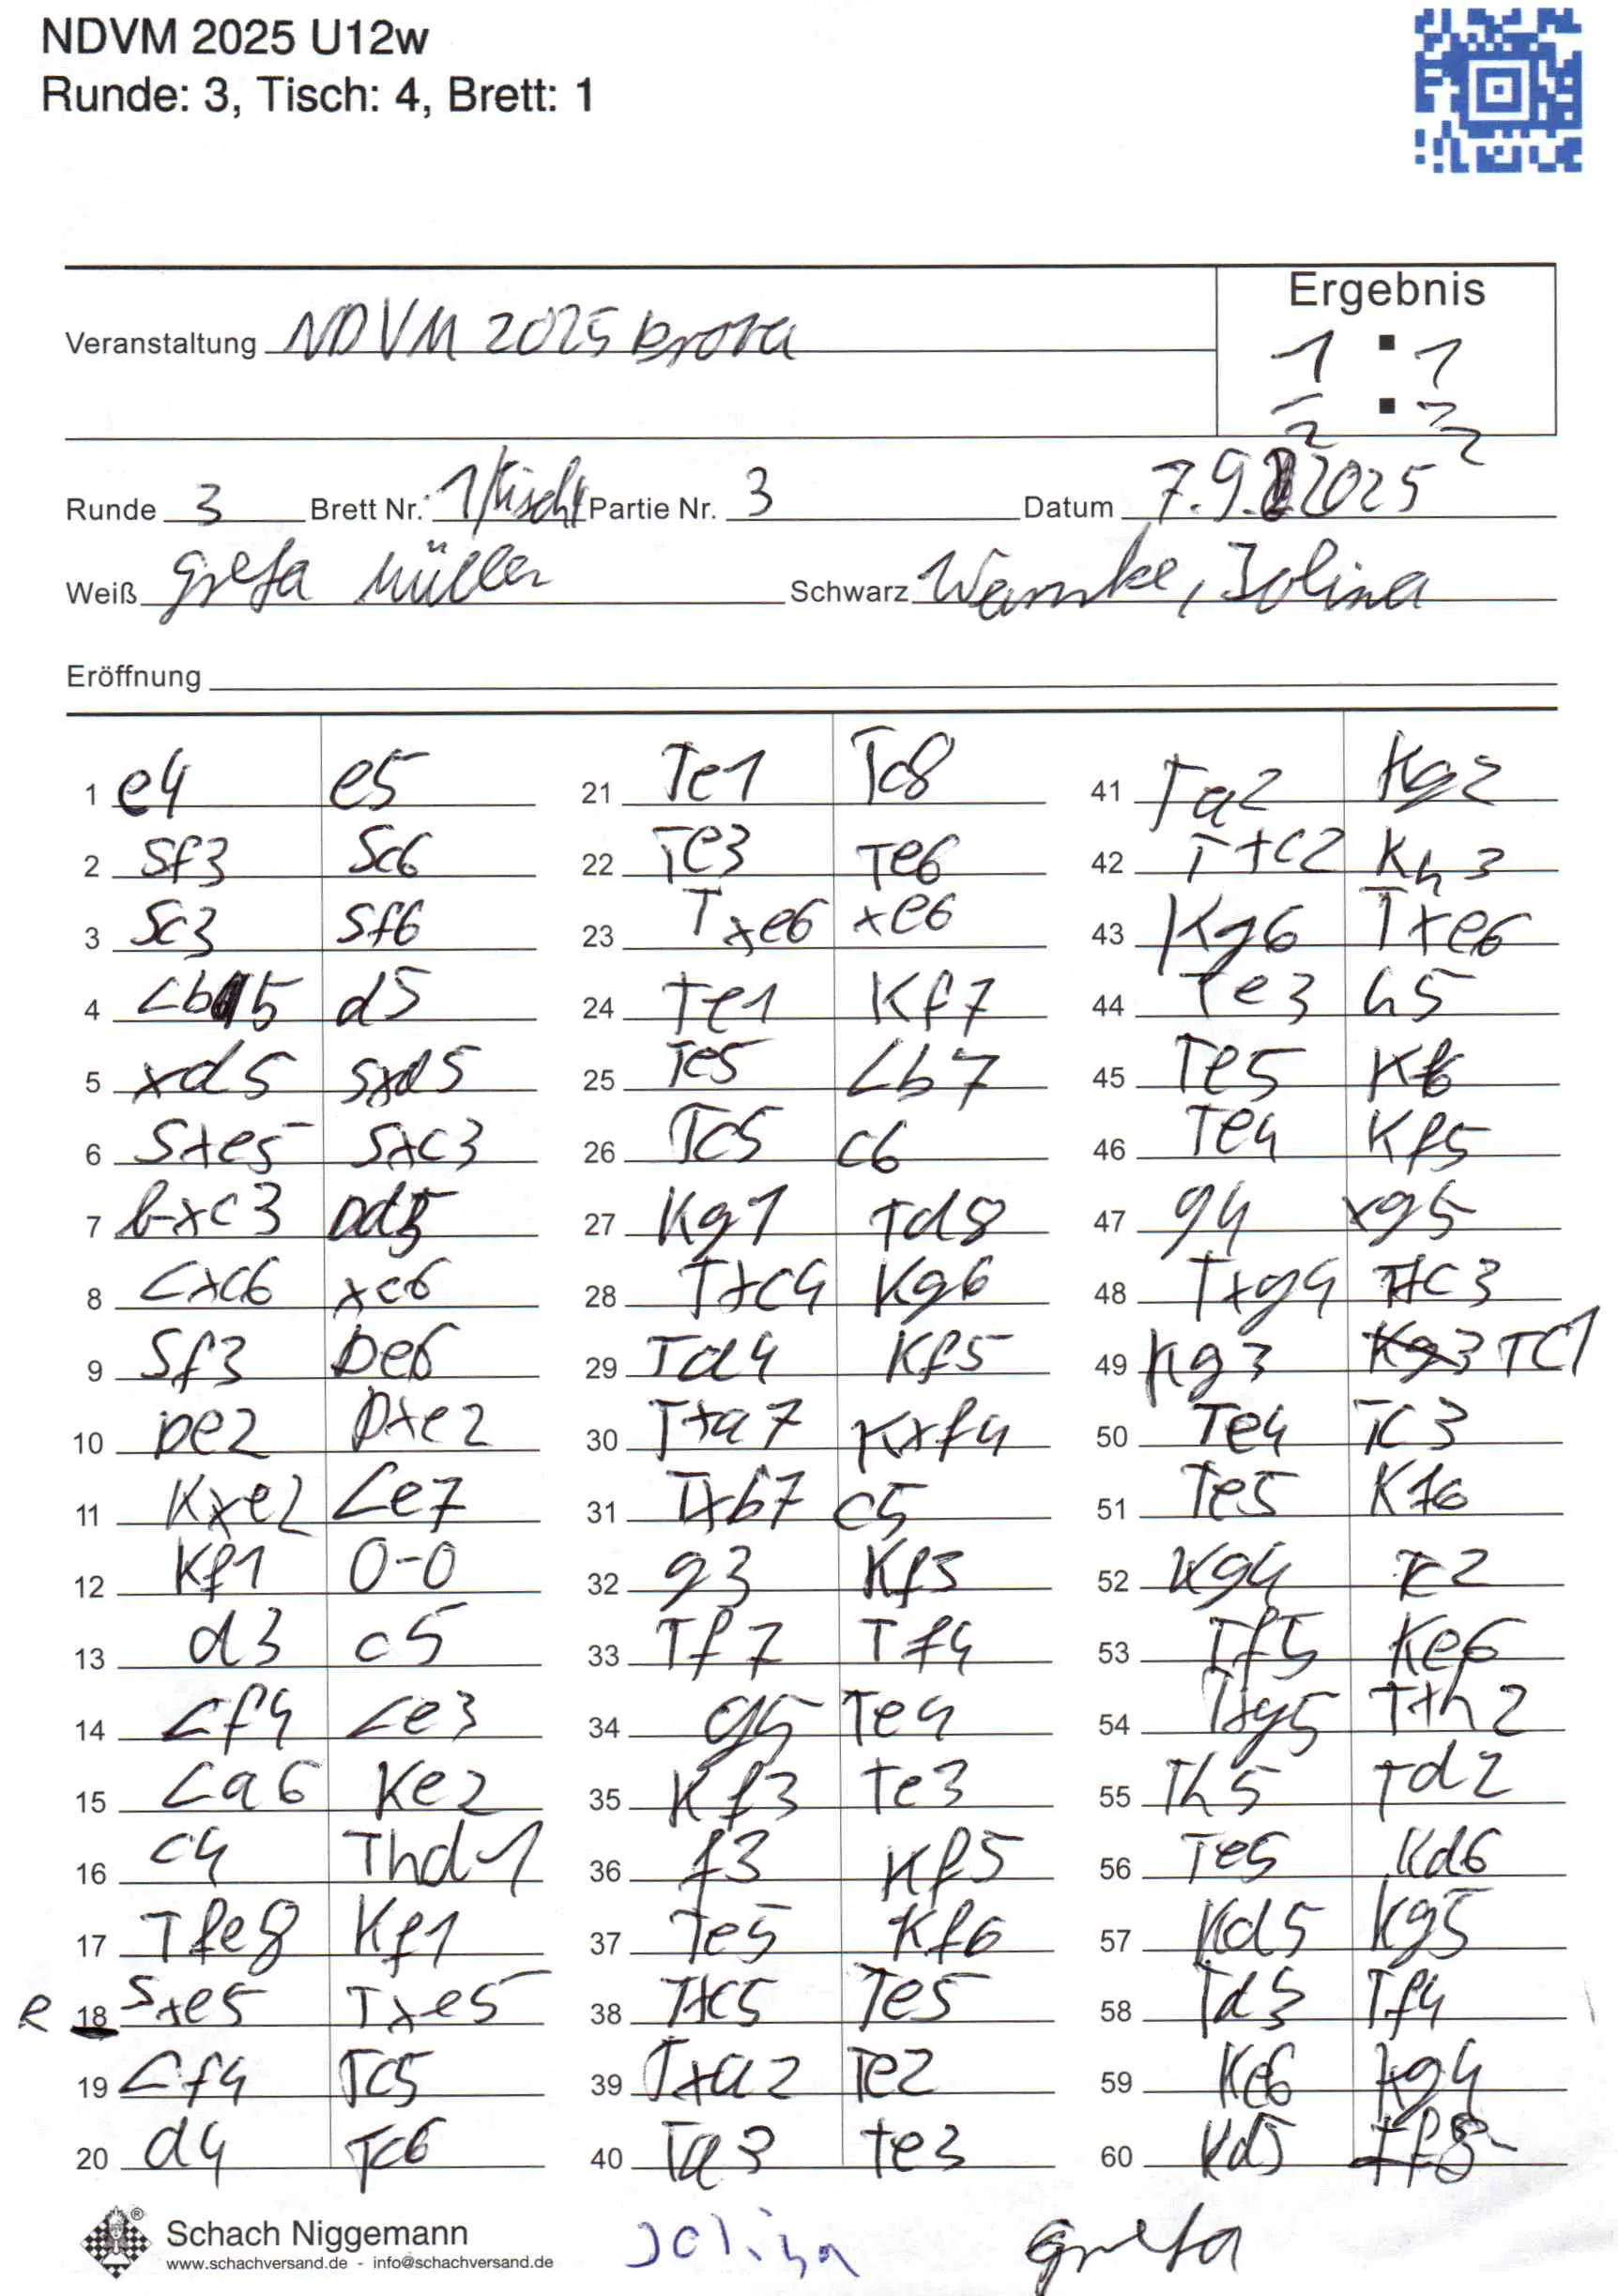 NDVM 2025 U12w
Runde: 3, Tisch: 4, Brett: 1
Ergebnis
Veranstaltung NDVM 2025
1 : 1
2 : 2
Runde 3 Brett Nr. 1/Tisch4 Partie Nr. 3 Datum 7.9.2025
Weiß Greta Müller Schwarz Warnke, Jolina
Eröffnung
1 e4 e5
2 Sf3 Sc6
3 Sc3 Sf6
4 Lb5 d5
5 xd5 Sxd5
6 Sxe5 Sxc3
7 bxc3 Dd5
8 Lxc6 xc6
9 Sf3 De6
10 De2 Dxe2
11 Kxe2 Le7
12 Kf1 0-0
13 d3 c5
14 Lf4 Le3
15 La6 Ke2
16 c4 Thd1
17 Tfe8 Kf1
R 18 Sxe5 Txe5
19 Lf4 Tc5
20 d4 Tc6
21 Te1 Tc8
22 Te3 Te6
23 Txe6 xe6
24 Te1 Kf7
25 Te5 Lb7
26 Tc5 c6
27 Kg1 Td8
28 Txc4 Kg6
29 Td4 Kf5
30 Txa7 Kxf4
31 Txb7 c5
32 g3 Kf5
33 Tf7 Tf4
34 g5 Te4
35 Kf3 Te3
36 f3 Kf5
37 Te5 Kf6
38 Txc5 Te5
39 Txa2 Te2
40 Ta3 te3
41 Ta2 Kg2
42 Txc2 Kh3
43 Kg6 Txe6
44 Te3 h5
45 Te5 Kf6
46 Te4 Kf5
47 g4 xg5
48 Txg4 Txc3
49 Kg3 Kg3 TC1
50 Te4 Tc3
51 Te5 Kf6
52 Kg4 Tc2
53 Tf5 Ke6
54 Txg5 Txh2
55 Th5 Td2
56 Te5 Kd6
57 Kd5 Kg5
58 Td5 Tf4
59 Ke6 Kg4
60 Kd5 Tf8
Schach Niggemann
www.schachversand.de - info@schachversand.de
Jolina
Greta